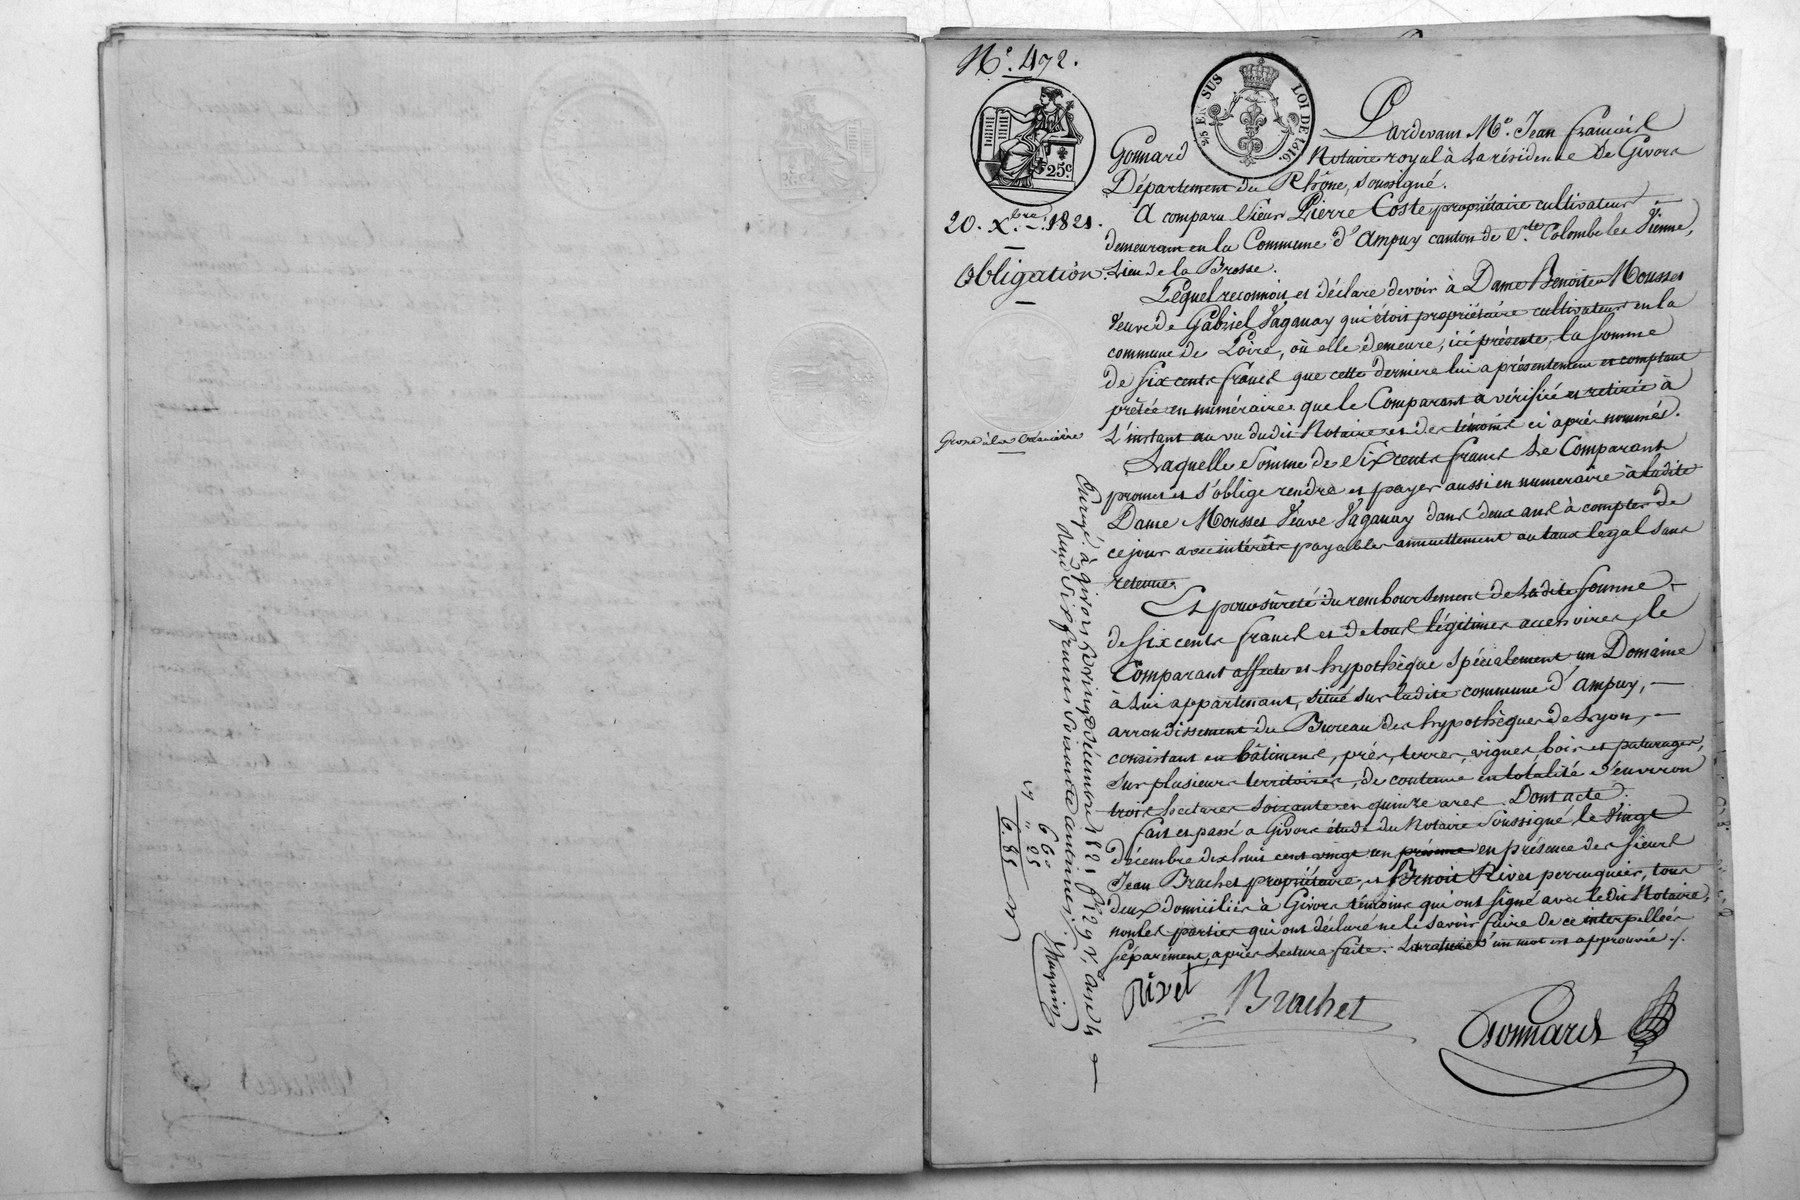 N° 472.
25 EN SUS LOI DE 1816.
25c
20. Xbre 1821.
Obligation
Grosse à la Créancière
Pardevant Me. Jean François
Gonnard Notaire royal à la résidence de Givors
Département du Rhône, soussigné.
A comparu Sieur Pierre Coste propriétaire cultivateur
demeurant en la Commune d'Ampuy canton de Ste Colombe les Vienne,
Lieu de la Brosse.
Lequel reconnoit et déclare devoir à Dame Benoite Mousset
Veuve de Gabriel Vaganay qui étoit propriétaire cultivateur en la
commune de Loire, où elle demeure, ici présente, la somme
de six cents francs que cette dernière lui a présentement et comptant
prêtée en numéraire que le Comparant a vérifiée et retirée à
L'instant au vu dudit Notaire et des témoins ci après nommés.
Laquelle Somme de Six cents francs Le Comparant
promet et s'oblige rendre et payer aussi en numéraire à ladite
Dame Mousset Veuve Vaganay dans deux ans à compter de
ce jour avec intérêts payables annuellement au taux legal sans
retenue.
Et pour sûreté du remboursement de ladite somme
de six cents francs et de tous légitimes accessoires, le
Comparant affecte et hypothèque spécialement un Domaine
à lui appartenant, situé sur ladite commune d'Ampuy,
arrondissement du Bureau des hypothèques de Lyon,
consistant en bâtiment, prés, terres, vignes bois et paturages,
sur plusieurs territoires, de contenue en totalité d'environ
trois hectares soixante et quinze ares. Dont acte.
fait et passé à Givors étude du Notaire soussigné le Vingt
décembre dix huit cent vingt un présence en présence des sieurs
Jean Brachet propriétaire, et Benoit Rivet perruquier, tous
deux domiciliés à Givors témoins qui ont signé avec ledit Notaire,
non les parties qui ont déclaré ne le savoir faire de ce interpellées
séparément, après Lecture faite. La rature d'un mot est approuvée ./.
Rivet Brachet Gonnard
Enregé. à givors le vingt décembre 1821 fo. 29 Vo. Case 4
Reçu Six francs Soixante centimes.
6 60
6. 85